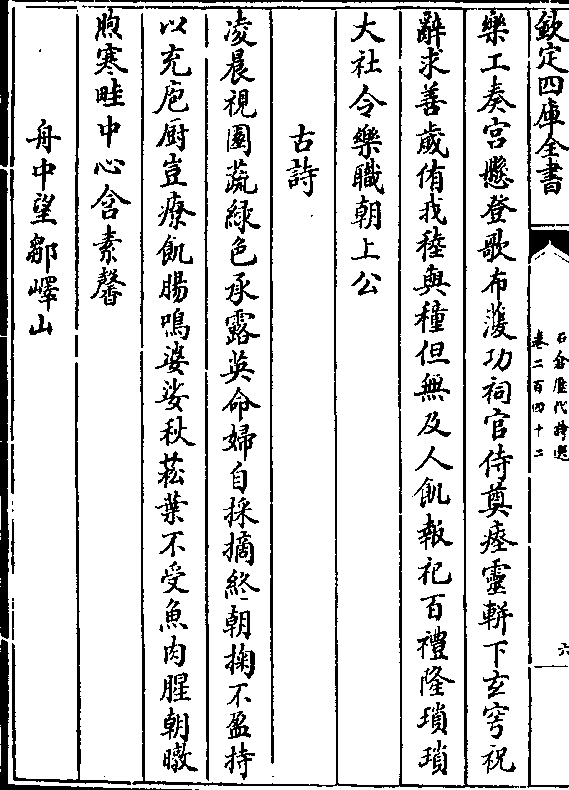 欽定四庫全書
石倉歷代詩選
卷二百四十二
六
樂工奏宮懸登歌布濩功祠官侍奠瘞靈軿下玄穹祝
辭求善歲侑我稑與種但無及人飢報祀百禮隆瑣瑣
大社令樂職朝上公
古詩
凌晨視園蔬綠色承露英命婦自採摘終朝掬不盈持
以充庖厨豈療飢腸鳴婆娑秋菘葉不受魚肉腥朝暾
煦寒畦中心含素馨
舟中望鄒嶧山